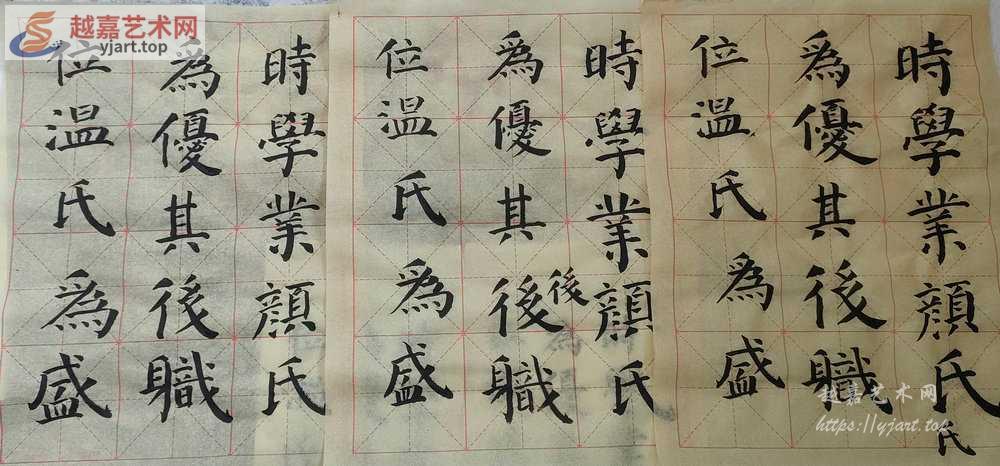 越嘉艺术网
yjart.top
時學業顔氏
為優其後職
位温氏為盛
時學業顔氏
為優其後職
後
位温氏為盛
時學業顔氏
氏
為優其後職
位温氏為盛
越嘉艺术网
https://yjart.top